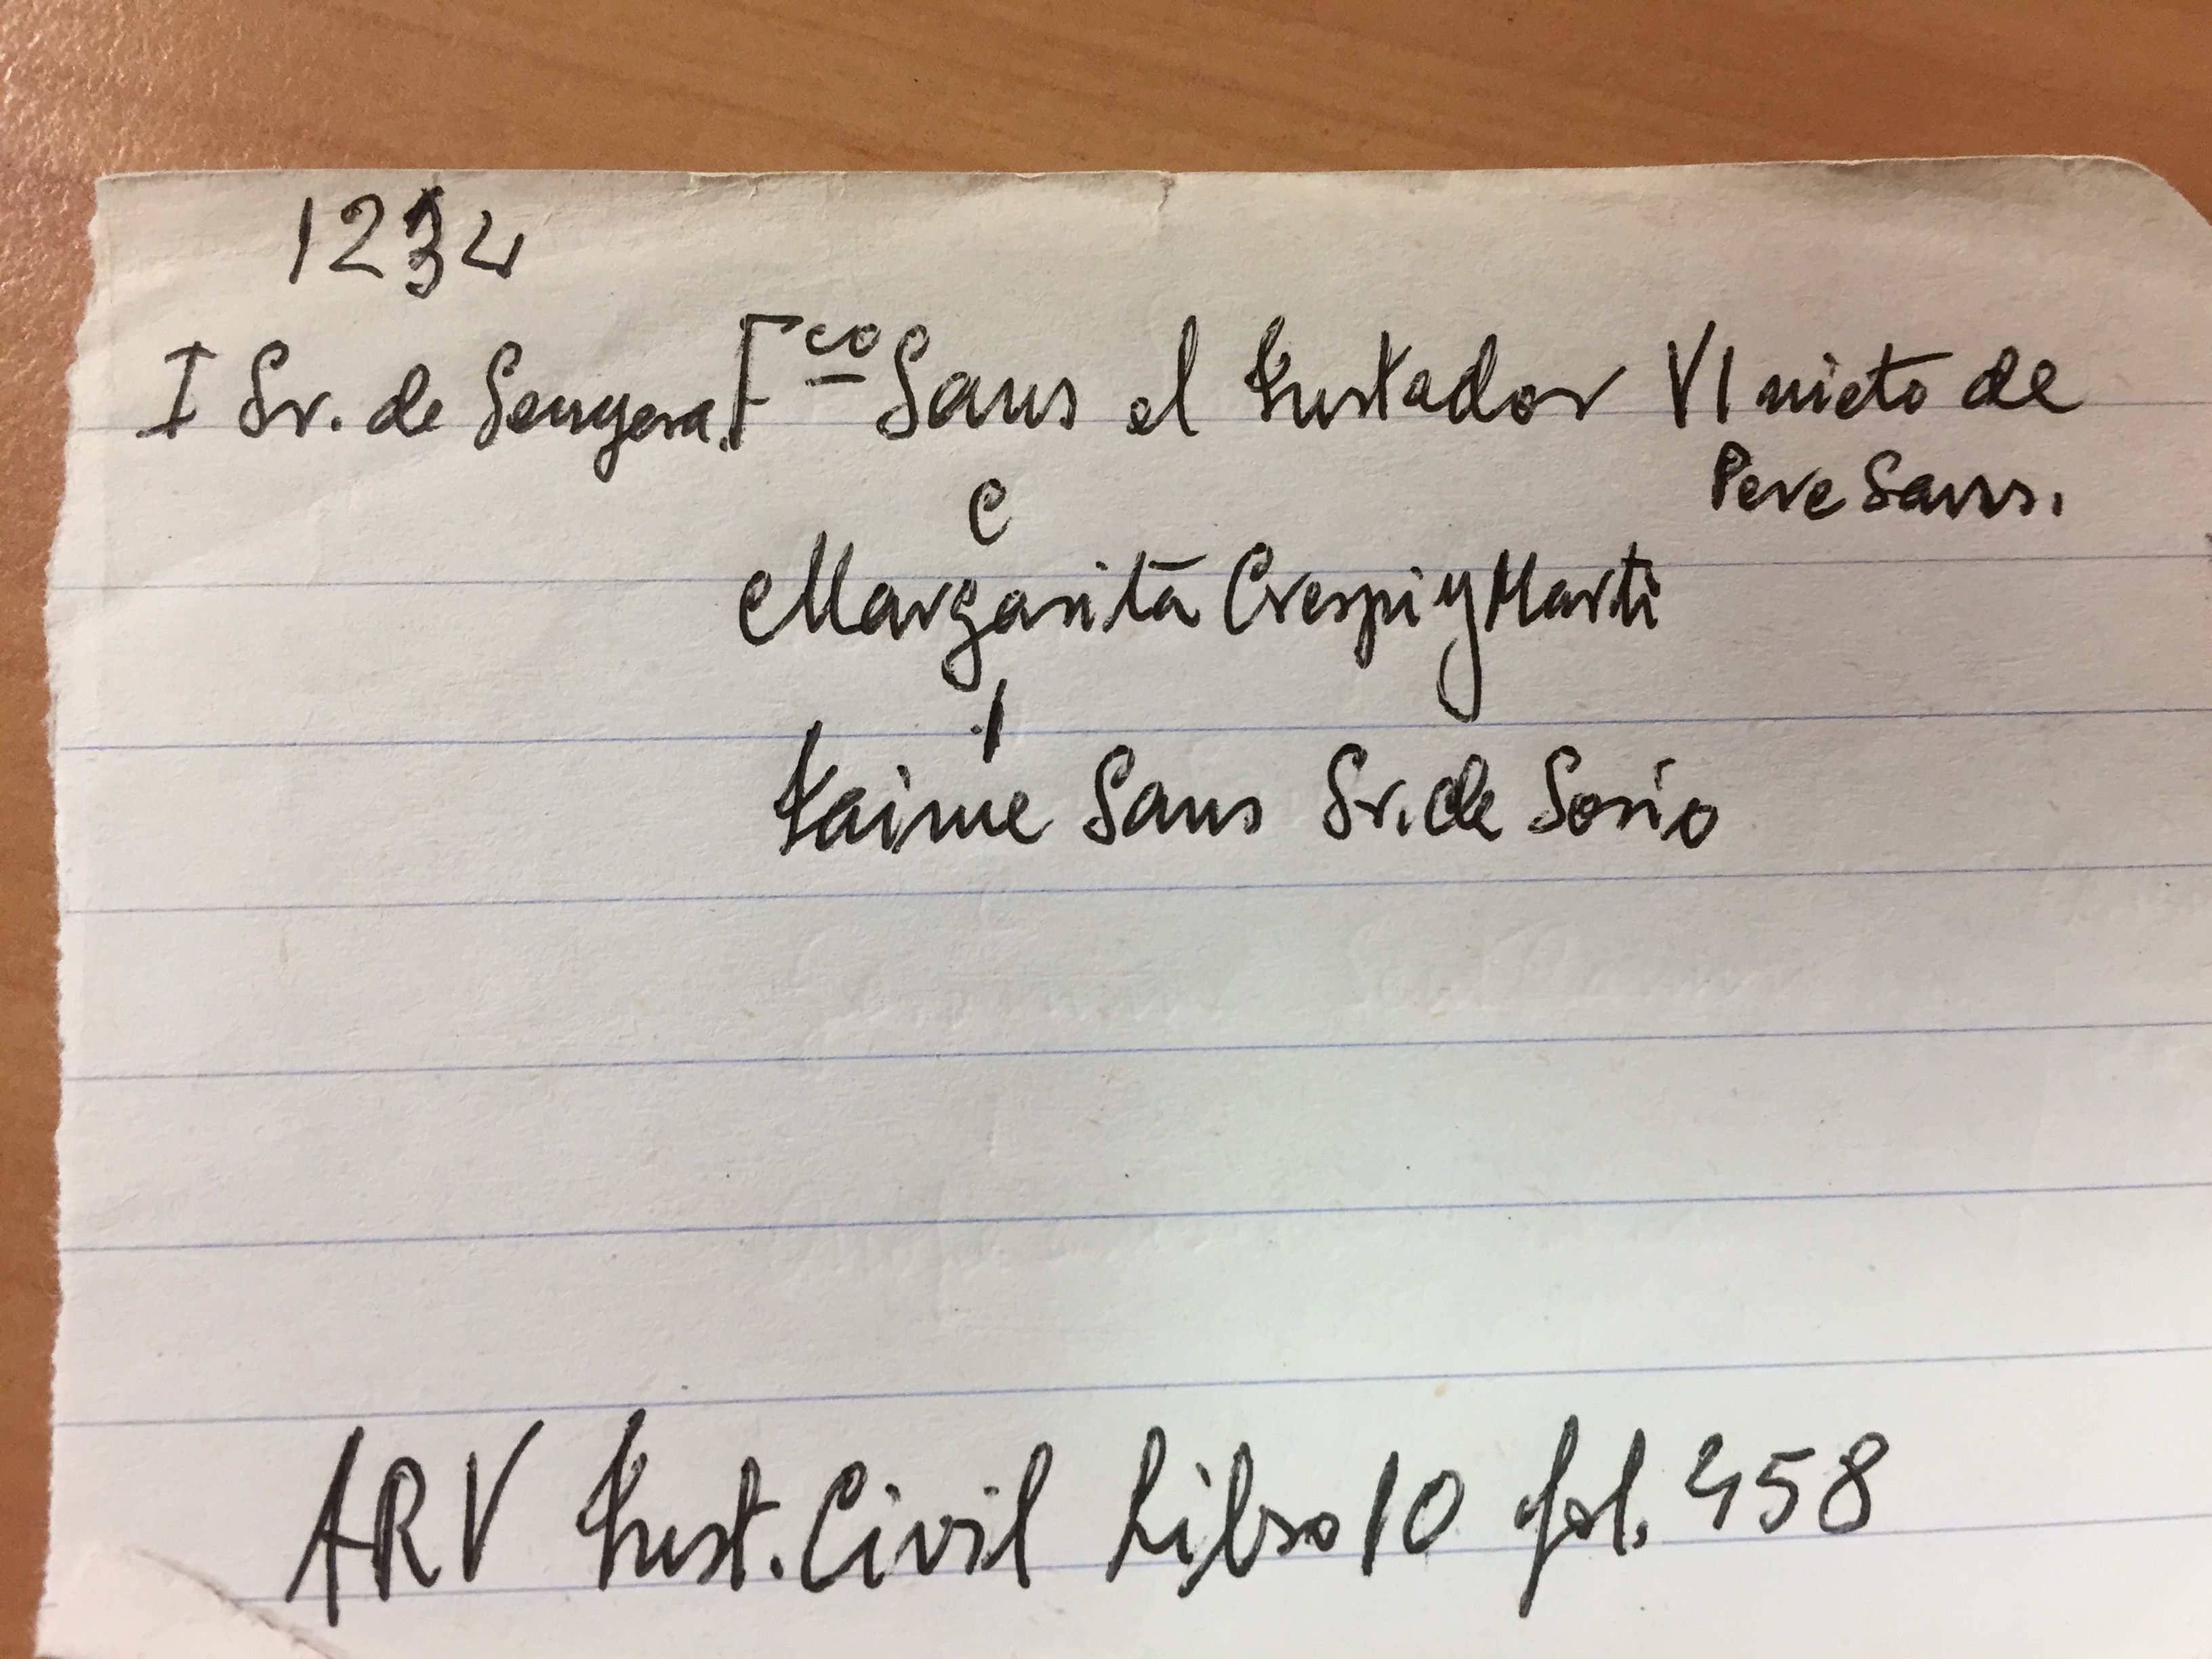 1234
I Sr. de Senyera. Fco Sans el Justador VI nieto de
Pere Sans.
c
Margarita Crespi y Marti
Jaime Sans Sr. de Sorio
ARV Just. Civil Libro 10 fol. 458